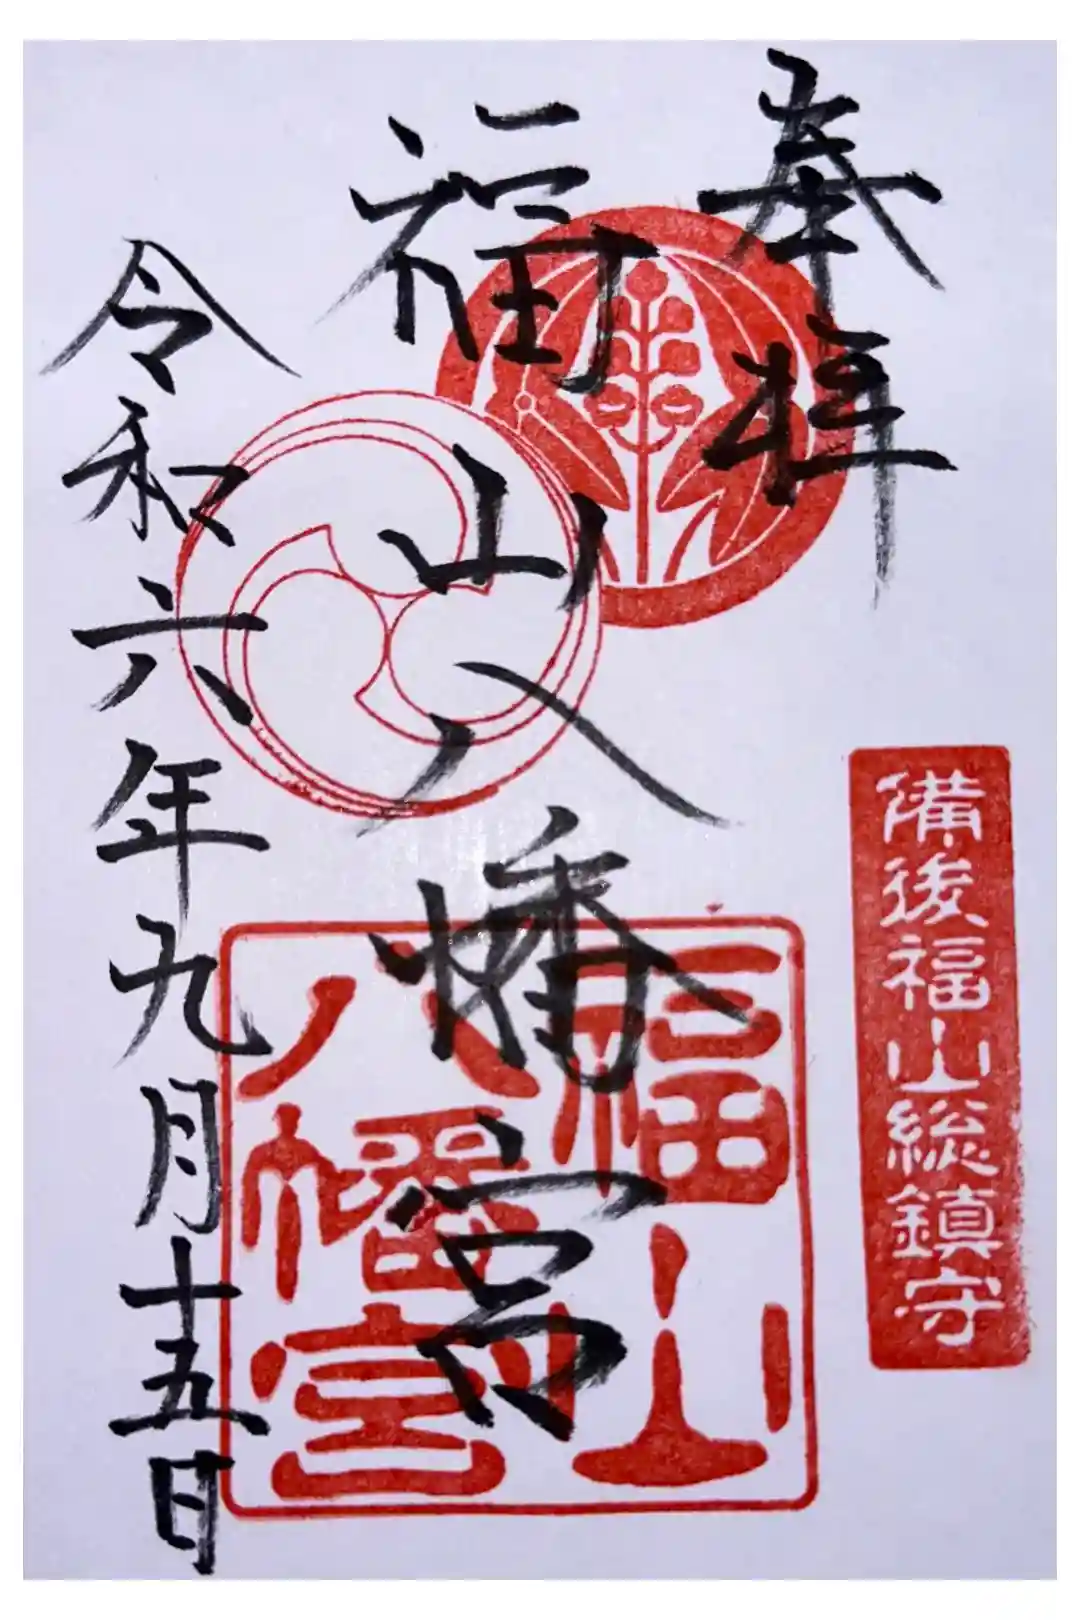 奉拝
備後福山総鎮守
福山八幡宮
福山
八幡宮
令和六年九月十五日